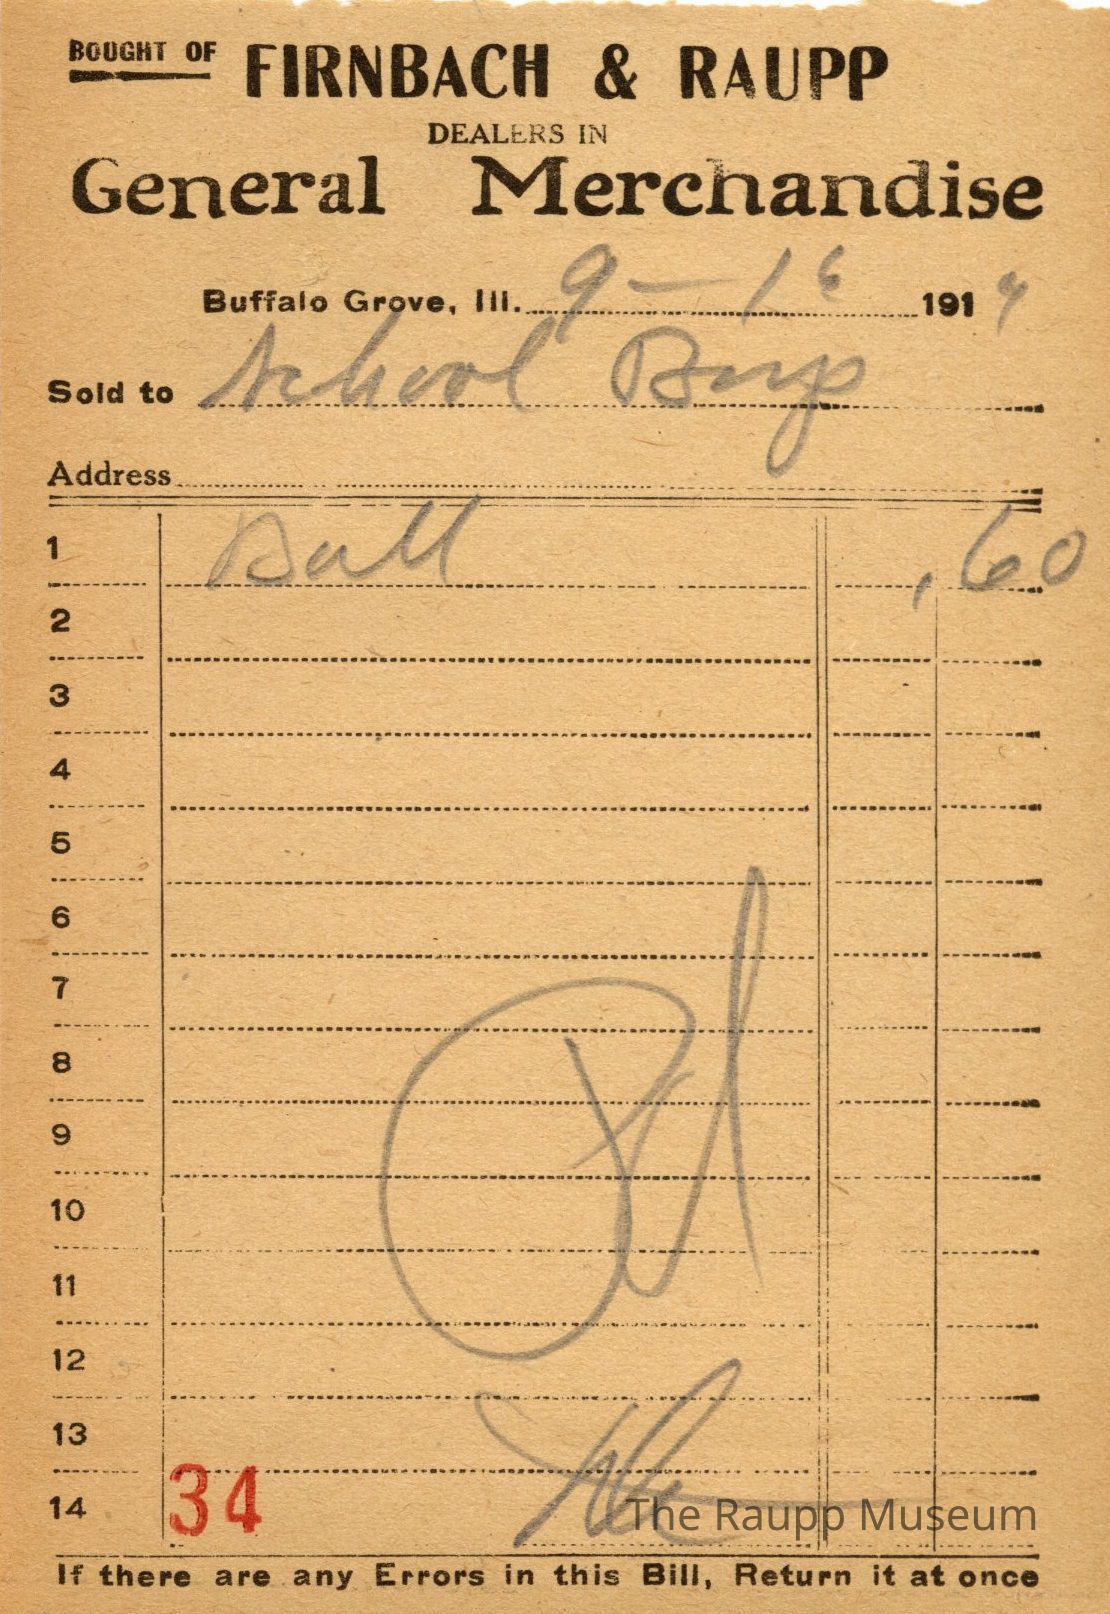 BOUGHT OF FIRNBACH & RAUPP
DEALERS IN
General Merchandise
Buffalo Grove, Ill. 9-16 1914
Sold to School Boys
Address
1 Ball .60
2
3
4
5
6
7
8
9
10
11
12
13
14 34
The Raupp Museum
If there are any Errors in this Bill, Return it at once